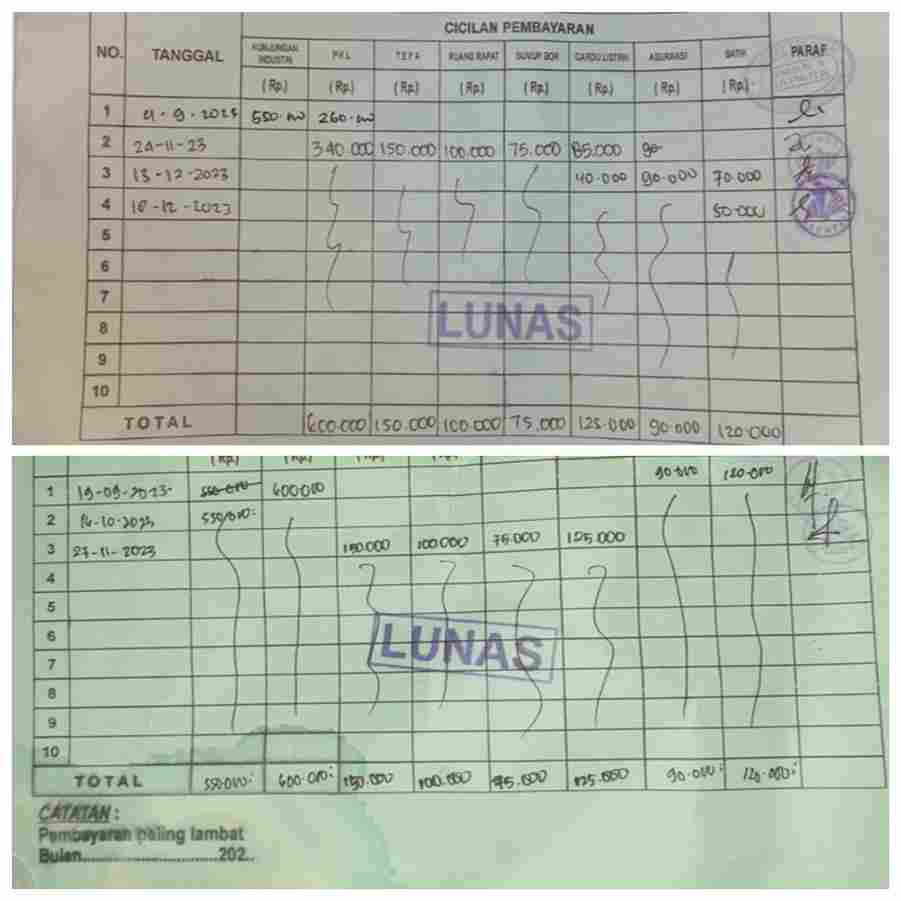 CICILAN PEMBAYARAN
NO. TANGGAL KUNJUNGAN INDUSTRI PKL TEFA RUANG RAPAT SUMUR BOR GARDU LISTRIK ASURANSI BATIK PARAF
(Rp.) (Rp.) (Rp.) (Rp.) (Rp.) (Rp.) (Rp.) (Rp.)
1 21-9-2023 550.000 260.000
2 24-11-23 340.000 150.000 100.000 75.000 85.000 90
3 13-12-2023 40.000 90.000 70.000
4 18-12-2023 50.000
5
6
7
LUNAS
8
9
10
TOTAL 600.000 150.000 100.000 75.000 125.000 90.000 120.000
(Rp.) (Rp.) (Rp.)
1 19-09-2023- 550.000 600.000 90.000 120.000
2 16-10-2023 550.000:
3 27-11-2023 150.000 100.000 75.000 125.000
4
5
6
LUNAS
7
8
9
10
TOTAL 550.000: 600.000: 150.000 100.000 75.000 125.000 90.000: 120.000:
CATATAN :
Pembayaran paling lambat
Bulan........................202..